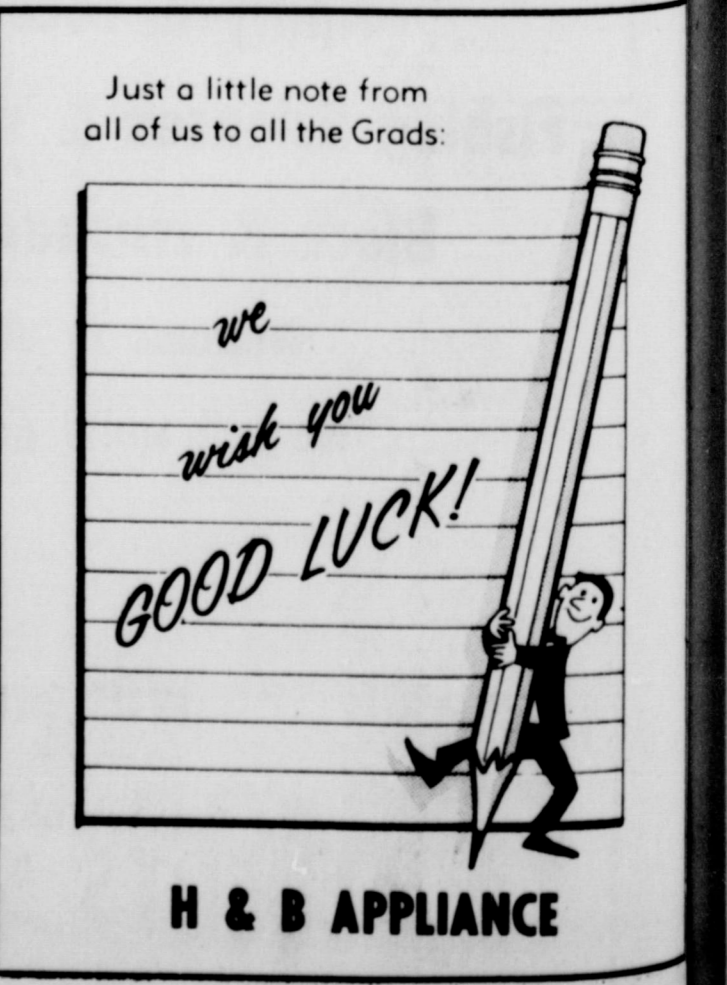 Just a little note from
all of us to all the Grads:
we
wish you
GOOD LUCK!
H & B APPLIANCE